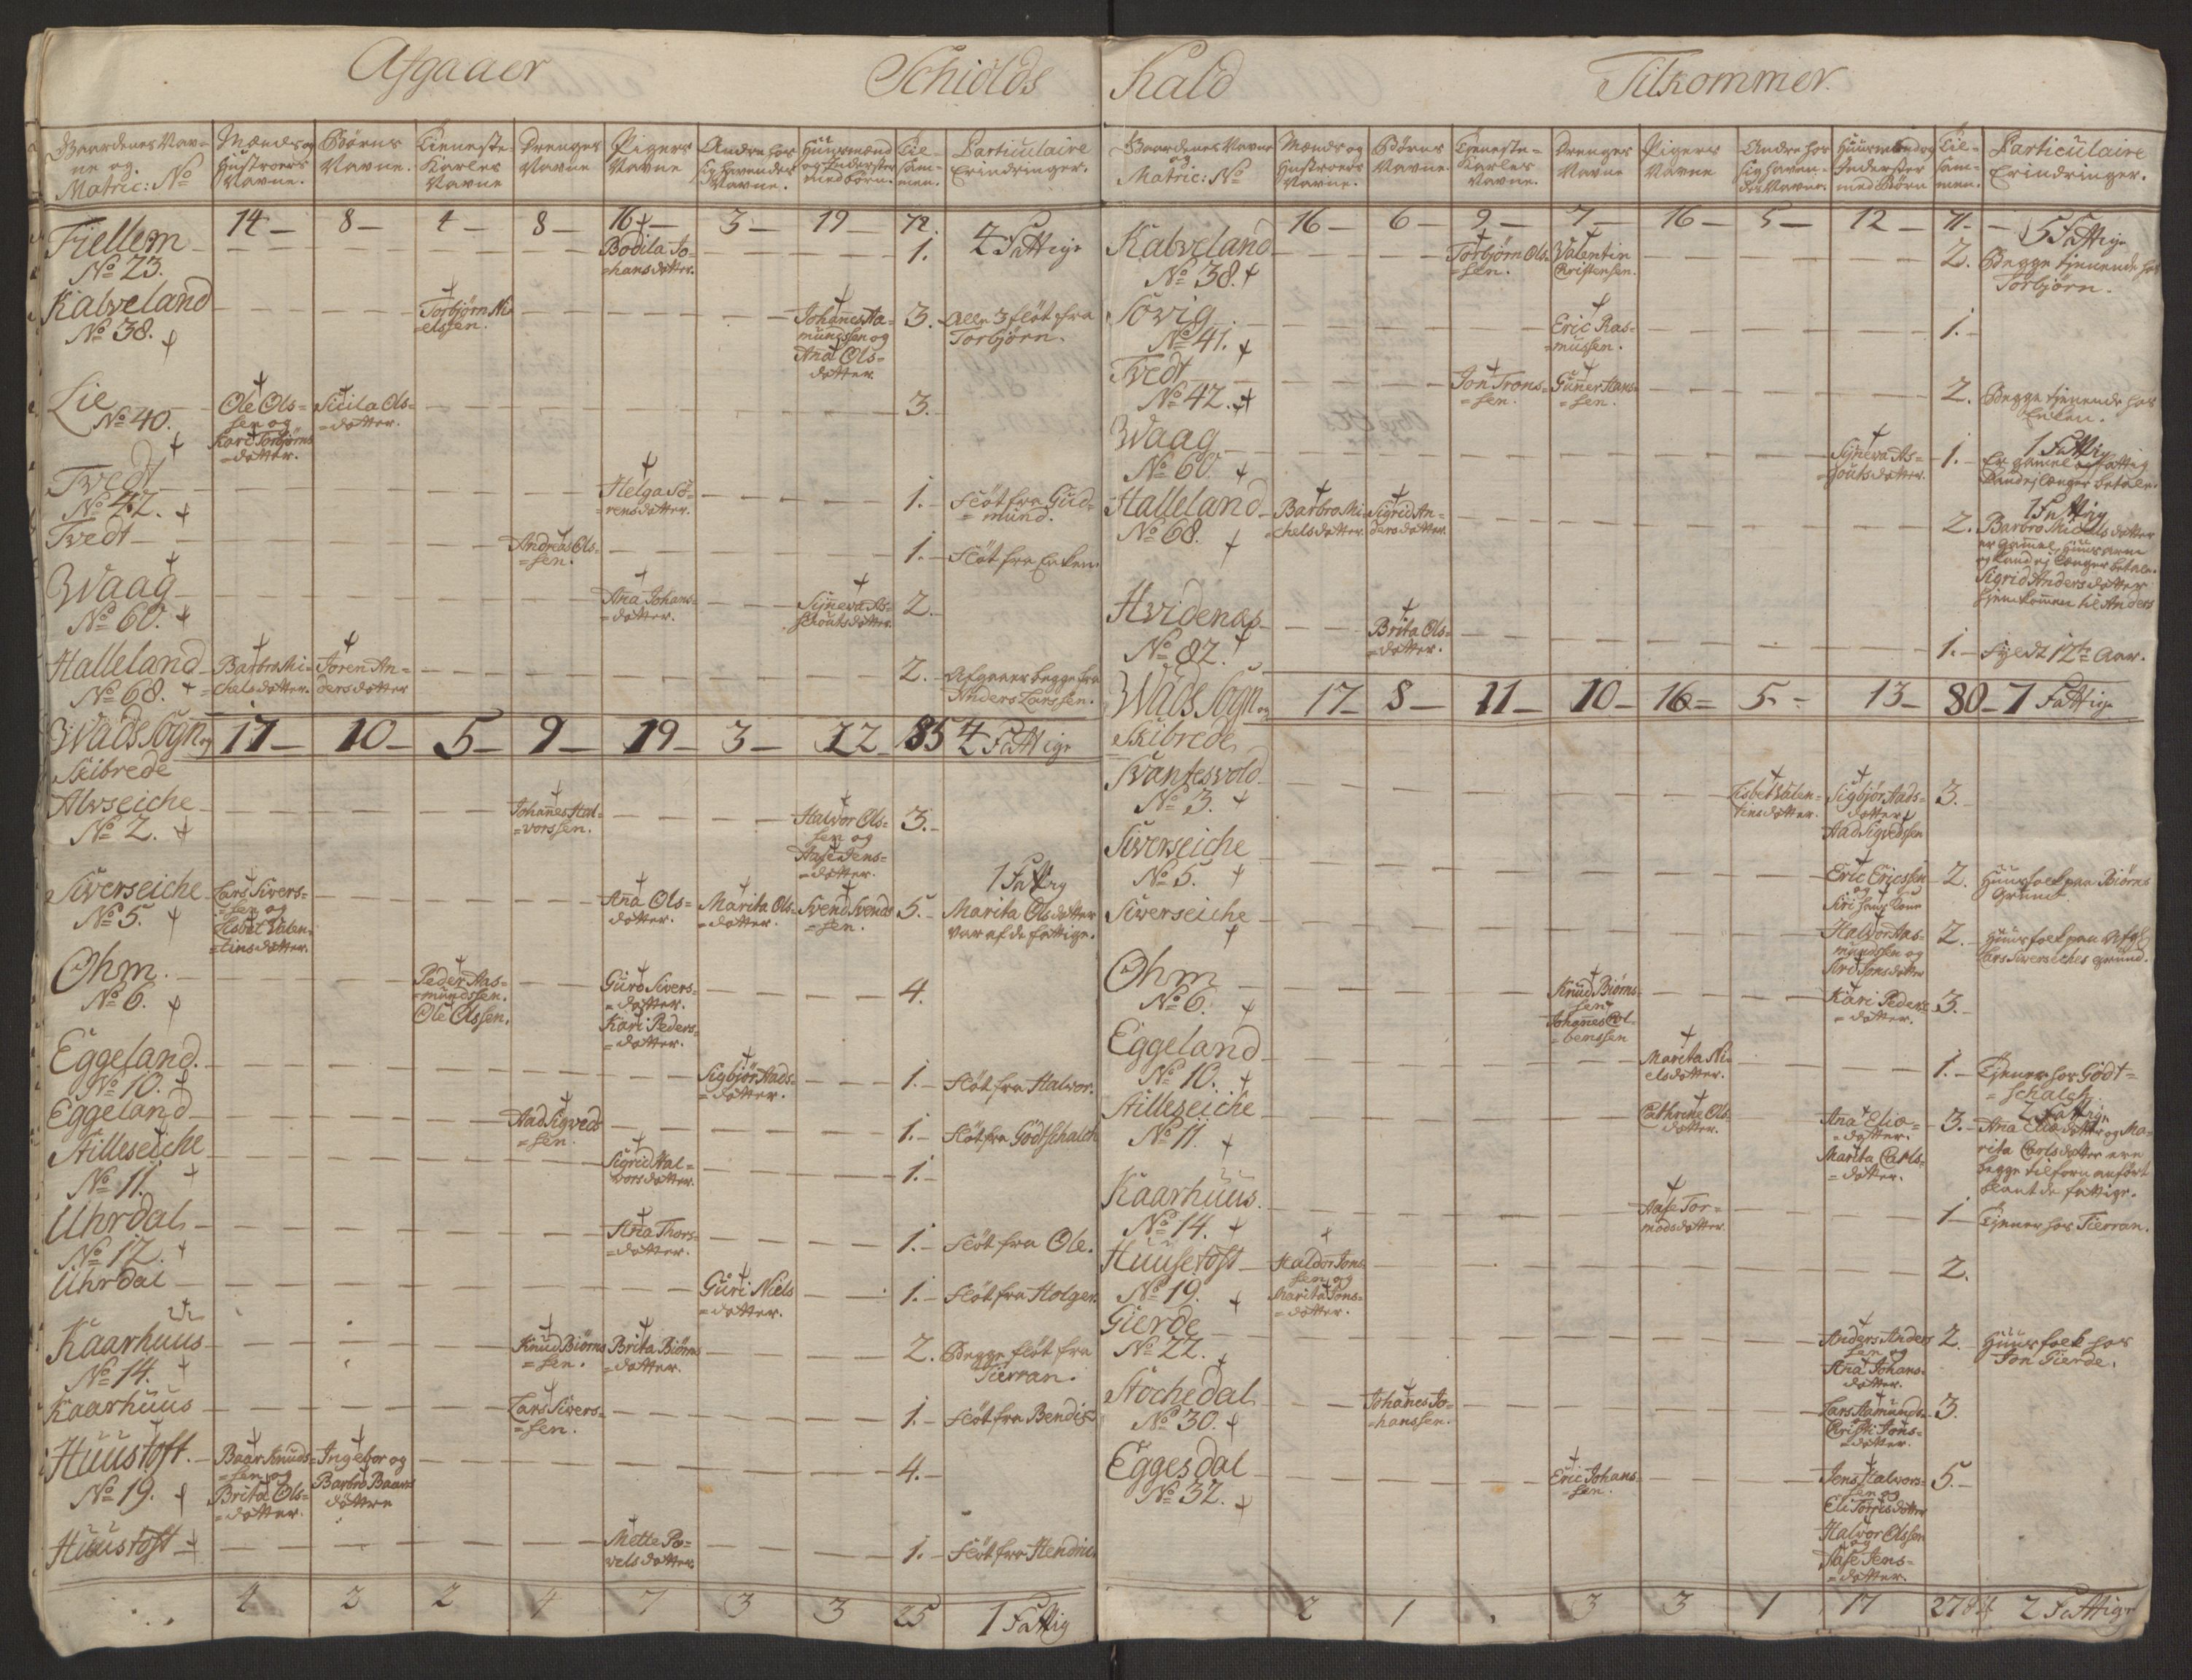 Afgaaer Schiolds
Gaardenes Nav-
ne og
Matric: No
Mænds og
Hustroers
Navne.
Børns
Navne.
Tieneste
Karles
Navne
Drenges
Navne
Pigers
Navne
Andre hos
sig havendes
Navne.
Huusmænd
og Inderster
med børn.
Til-
sam-
men.
Particulaire
Erindringer.
14 — 8 — 4 — 8 — 16 — 3 — 19 — 72.
4 Fattige
Fjellem
No 23.
Bodila Jo-
=hansdotter.
1.
Kalveland
No 38.
Torbjørn Ni-
elssen.
Johanes Aa-
mundssen og
Ana Ols-
dotter
3.
Alle 3 fløt fra
Torbjørn.
Lie
No 40.
Ole Ols-
sen og
Kari Torbjørns
=dotter.
Sicila Ols-
=dotter.
3.
Tvedt
No 42.
Helga Sö-
=rensdotter.
1.
Fløt fra Gud-
=mund.
Tvedt
Andreas Ols-
=sen.
1.
Fløt fra Enken
Waag
No 60.
Ana Johans-
=dotter.
Sijneva As-
schoutsdotter.
2.
Halleland
No 68.
Barbro Mi-
chelsdotter.
Joren An-
dersdotter
2.
Afgaaer begge fra
Anders Larssen.
Wads Sogn og 17 — 10 — 5 — 9 — 19 — 3 — 22 — 85 4 Fattige
Skibrede
Alvseiche
No 2.
Johanes Hal-
=vorssen.
Halvor Ols-
sen og
Aase Jens-
=dotter.
3.
Siverseiche
No 5.
Lars Sivers-
=sen og
Lisbet Valen-
=tinsdotter.
Ana Ols-
dotter.
Marita Ols-
=dotter.
Svend Svends
=sen.
5.
1 Fattig
Marita Olsdotter
var af de fattige.
Ohm.
No 6.
Peder Aas-
=mundssen.
Ole Olssen.
Guro Sivers-
=dotter.
Kari Peders-
=dotter.
4.
Eggeland.
No 10.
Sigbjør Aads-
=dotter.
1.
Fløt fra Halvor.
Eggeland
Aad Sigveds
=sen.
1.
Fløt fra Godtschalch
Stilleseiche
No 11.
Sigrid Hal-
vorsdotter.
1.
Uhrdal
No 12.
Ana Thors-
=dotter.
1.
Fløt fra Ole.
Uhrdal
Guri Niels
=dotter.
1.
Fløt fra Holger
Kaarhuus
No 14.
Knud Biørns
=sen.
Brita Biørns
=dotter.
2.
Begge fløt fra
Tierran.
Kaarhuus
Lars Sivers-
=sen.
1.
Fløt fra Bendix
Huustoft.
No 19.
Baar Knuds-
=sen og
Brita Ols-
=dotter.
Ingebor og
Barbro Baars
döttre
4.
Huustoft
Mette Po-
velsdotter.
1.
Fløt fra Hendric
4 2 2 4 7 3 3 25 1 Fattig
Kald Tilkommer.
Gaardenes Navne
og
Matric: No
Mænds og
Hustroers
Navne.
Børns
Navne.
Tieneste-
Karles
Navne.
Drenges
Navne
Pigers
Navne
Andre hos
sig haven-
des Navne.
Huusmænd og
Inderster
med Børn
Til-
sam-
men.
Particulaire
Erindringer.
16 — 6 — 9 — 7 — 16 — 5 — 12 — 71.
5 Fattige
Kalveland
No 38.
Torbjørn Ols-
=sen.
Valentin
Christensen.
2.
Begge tjenende hos
Torbjørn.
Sövig
No 41.
Eric Ras-
=mussen.
1.
Tvedt
No 42.
Jon Trons-
=sen.
Guner Hans-
=sen.
2.
Begge tjenende hos
Enken.
Waag
No 60.
Sijneva As-
schoutsdotter.
1.
1 Fattig
Er gamel og fattig
kand ej længer betale.
Halleland
No 68.
Barbro Mi-
chelsdotter.
Sigrid An-
dersdotter.
2.
1 Fattig
Barbro Michelsdotter
er gamel Huusarm
og kand ej længer betale.
Sigrid Andersdotter
hjemkommen til Anders
Hvidenæs
No 82.
Brita Ols-
=dotter.
1.
Fyldt 12te Aar.
Wads Sogn og 17 — 8 — 11 — 10 — 16 — 5 — 13 — 80 — 7 Fattige
Skibrede
Svantesvold
No 3.
Lisbet Valen-
tinsdotter.
Sigbjør Aads-
dotter
Aad Sigvedssen
3.
Siverseiche
No 5.
Eric Ericssen
og
Siri hans Kone
2.
Huusfolk paa Biørns
Grund.
Siverseiche
Halvor Aas-
mundssen og
Siri Jonsdotter
2.
Huusfolk paa Afg.
Lars Siverseiches grund.
Ohm
No 6.
Knud Biørns-
sen
Johanes Col-
=bensen
Kari Peders-
=dotter.
3.
Eggeland
No 10.
Marita Ni-
elsdotter.
1.
Tjener hos Godt-
=schalch.
Stilleseiche
No 11.
Cathrine Ols-
dotter.
Ana Elia-
=dotter.
Marita Carls-
=dotter.
3.
2 Fattige
Ana Eliadotter og Ma-
rita Carlsdotter ere
begge tilforn anført
blant de fattige.
Kaarhuus.
No 14.
Aase Tor-
modsdotter.
1
Tjener hos Tierran.
Huusetoft
No 19.
Haldor Jons-
sen og
Marita Jons-
=dotter.
2.
Gierde
No 22.
Anders Anders
sen og
Ana Johans-
dotter.
2.
Huusfolk hos
Jon Gierde.
Stochedal
No 30.
Johanes Jo-
=hanssen.
Lars Aamunds-
Christi Jons-
=dotter.
3.
Eggesdal
No 32.
Eric Johans-
=sen.
Jens Halvors-
sen og
Eli Torrisdotter
Halvor Olssen
og
Aase Jens-
=dotter.
5.
2 1 3 3 1 17 27 2 Fattige